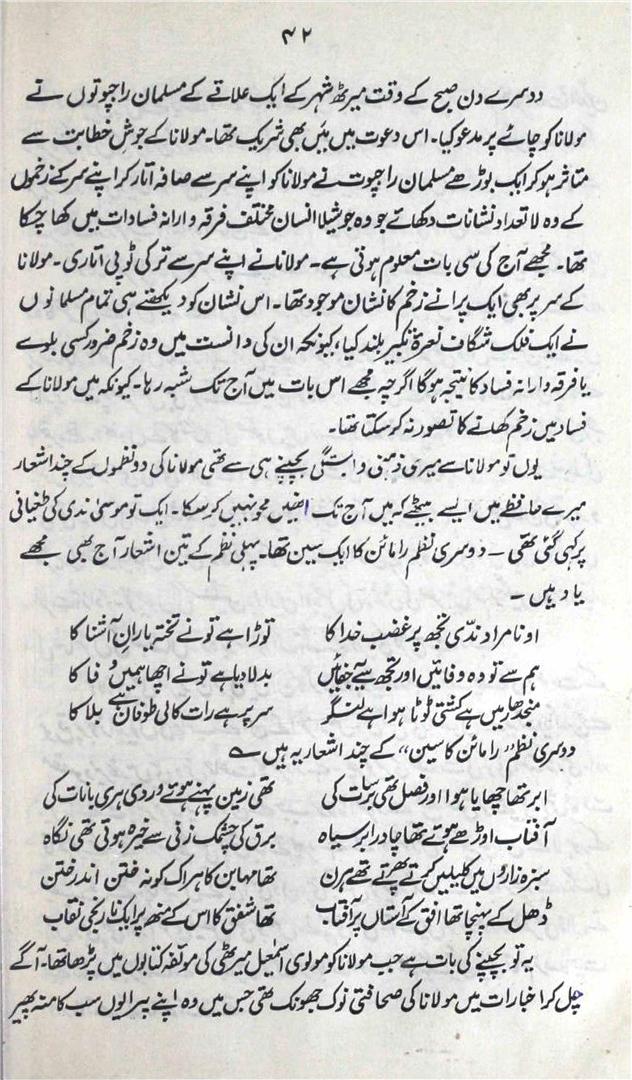 ۴۲
دوسرے دن صبح کے وقت میرٹھ شہر کے ایک علاقے کے مسلمان راجپوتوں نے
مولانا کو چائے پر مدعو کیا۔ اس دعوت میں میں بھی شریک تھا۔ مولانا کے جوش خطابت سے
متاثر ہو کر ایک بوڑھے مسلمان راجپوت نے مولانا کو اپنے سر سے صافہ اتار کر اپنے سر کے زخموں
کے وہ لاتعداد نشانات دکھائے جو وہ جوشیلا انسان مختلف فرقہ وارانہ فسادات میں کھا چکا
تھا۔ مجھے آج کی سی بات معلوم ہوتی ہے۔ مولانا نے اپنے سر سے ترکی ٹوپی اتاری۔ مولانا
کے سر پر بھی ایک پرانے زخم کا نشان موجود تھا۔ اس نشان کو دیکھتے ہی تمام مسلمانوں
نے ایک فلک شگاف نعرۂ تکبیر بلند کیا، کیونکہ ان کی دانست میں وہ زخم ضرور کسی بلوے
یا فرقہ وارانہ فساد کا نتیجہ ہوگا اگرچہ مجھے اس بات میں آج تک شبہ رہا۔ کیونکہ میں مولانا کے
فساد میں زخم کھانے کا تصور نہ کر سکتا تھا۔
یوں تو مولانا سے میری ذہنی وابستگی بچپنے ہی سے تھی مولانا کی دو نظموں کے چند اشعار
میرے حافظے میں ایسے بیٹھے کہ میں آج تک انہیں محو نہیں کر سکا۔ ایک تو موسیٰ ندی کی طغیانی
پر کہی گئی تھی۔ دوسری نظم رامائن کا ایک سین تھا۔ پہلی نظم کے تین اشعار آج بھی مجھے
یاد ہیں۔
او نامراد ندّی تجھ پر غضب خدا کا توڑا ہے تو نے تختہ یارانِ آشنا کا
ہم سے تو وہ وفائیں اور تجھ سے یہ جفائیں بدلا دیا ہے تو نے اچھا ہمیں وفا کا
منجدھار میں ہے کشتی ٹوٹا ہوا ہے لنگر سر پر ہے رات کالی طوفان ہے بلا کا
دوسری نظم "رامائن کا سین" کے چند اشعار یہ ہیں ؎
ابر تھا چھایا ہوا اور فصل تھی برسات کی تھی زمین پہنے ہوئے وردی ہری بانات کی
آفتاب اوڑھے ہوئے تھا چادر ابر سیاہ برق کی چشمک زنی سے خیرہ ہوتی تھی نگاہ
سبزہ زاروں میں کلیلیں کرتے پھرتے تھے ہرن تھا مہابن کا ہر اک کونہ ختن اندر ختن
ڈھل کے پہنچا تھا افق کے آستاں پر آفتاب تھا شفق کا اس کے منھ پر ایک نارنجی نقاب
یہ تو بچپنے کی بات ہے جب مولانا کو مولوی اسمٰعیل میرٹھی کی مؤلفہ کتابوں میں پڑھا تھا۔ آگے
چل کر اخبارات میں مولانا کی صحافتی نوک جھونک تھی جس میں وہ اپنے پیرایوں سب کا منہ پھیر